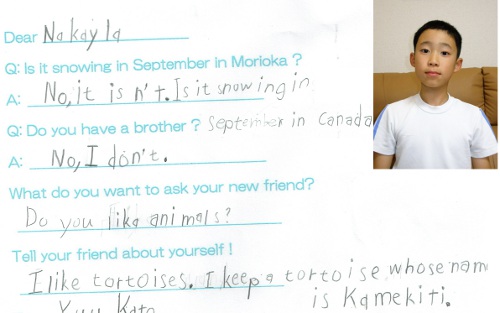 Dear Nakayla
Q: Is it snowing in September in Morioka ?
A: No, it is n't. Is it snowing in
Q: Do you have a brother ? September in Canada
A: No, I don't.
What do you want to ask your new friend?
Do you lika animals?
Tell your friend about yourself !
I like tortoises. I keep a tortoise whose nam
is Kamekiti.
Yuu Kato